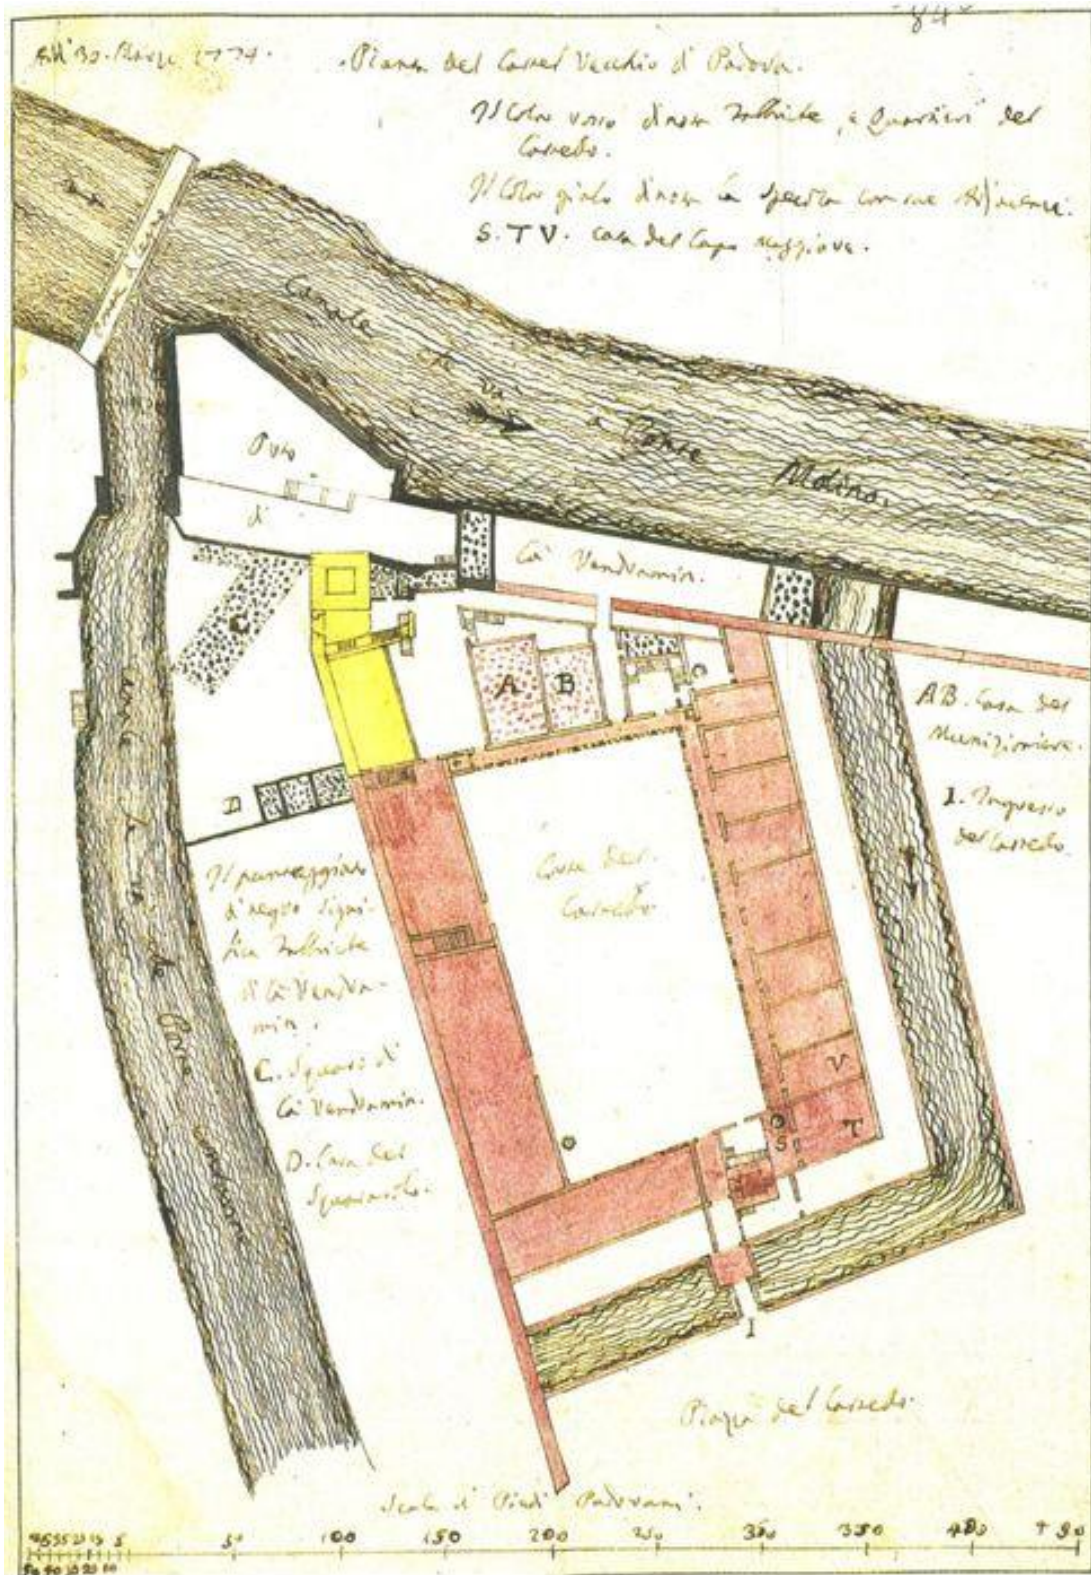 84
30. Marzo 1774.
Pianta del Castel Vecchio di Padova.
Il Color rosso dinota Fabbriche, e Quartieri del
Castello.
Il Color giallo dinota la Specola con sue Adjacenze.
S. T V. casa del Capo Maggiore.
Canale che va a Ponte Molino.
Orto
di
Ca' Vendramin.
C
A
B
C
AB. Casa del
Munizioniere.
I. Ingresso
del Castello.
D
Corte del
Castello
Il punteggiato
di negro signi-
fica Fabbriche
di Ca' Vendra-
min.
C. Squero di
Ca' Vendramin.
D. Casa del
Squerarolo.
V
S
T
I
Piazza del Castello.
Scala di Piedi Padovani.
5 50 100 150 200 250 300 350 400 450